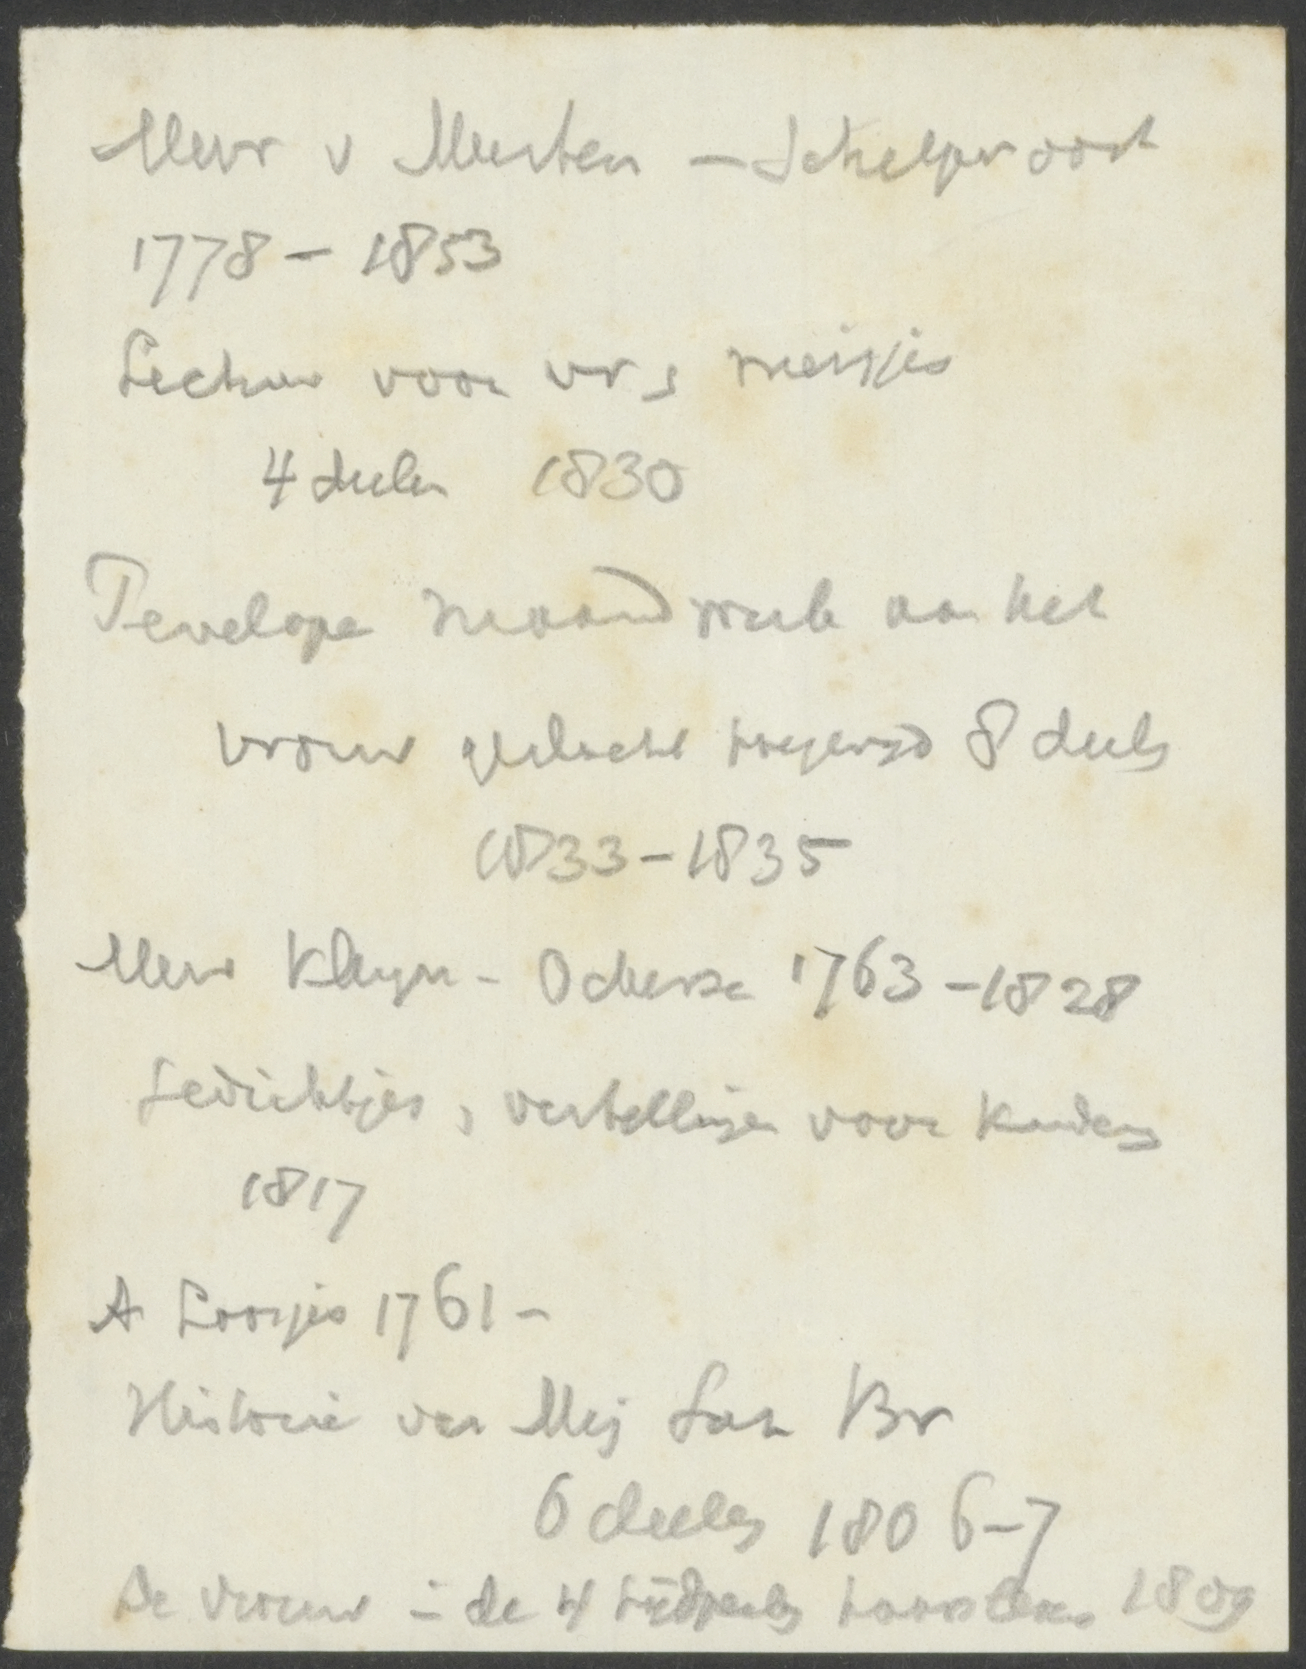 Mevr v Meerten - Schilperoort
1778 - 1853
Lectuur voor vr, meisjes
4 deelen 1830
Penelope maandwerk aan het
vrouw geslacht toegewijd 8 deelen
1833 - 1835
Mevr Kleyn - Ockerse 1763 - 1828
Gedichtjes, vertellingen voor Kinderen
1817
A Loosjes 1761 -
Historie van Mej Sus Br
6 deelen 1806-7
De vrouw in de 4 tijdperken haars levens 1809